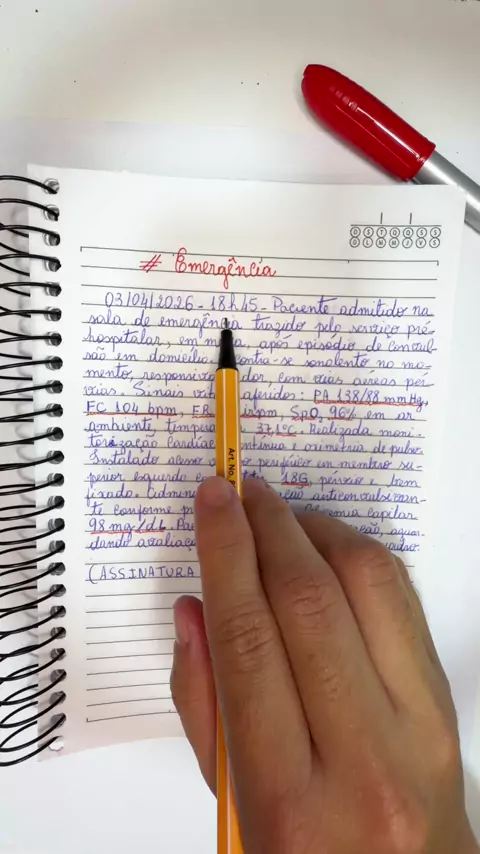 D S T Q Q S S
D L M M J V S
# Emergência
03/04/2026 - 18h45. Paciente admitido na
sala de emergência trazido pelo serviço pré-
hospitalar, em, após episódio de convul
são em domicílio. sonolento no mo-
mento, responsivo dor, com vias aéreas pér
vias. Sinais aferidos: PA 138/88 mmHg,
FC 104 bpm, FR irpm, SpO₂ 96% em ar
ambiente, 37,1°C. Realizada moni-
torização cardíaca contínua e oximetria de pulso.
Instalado acesso periférico em membro su-
perior esquerdo 18G, pérvio e bem
fixado. anticonvulsivan-
te conforme capilar
98 mg/dL. aguar
dando
(ASSINATURA
Art. No.